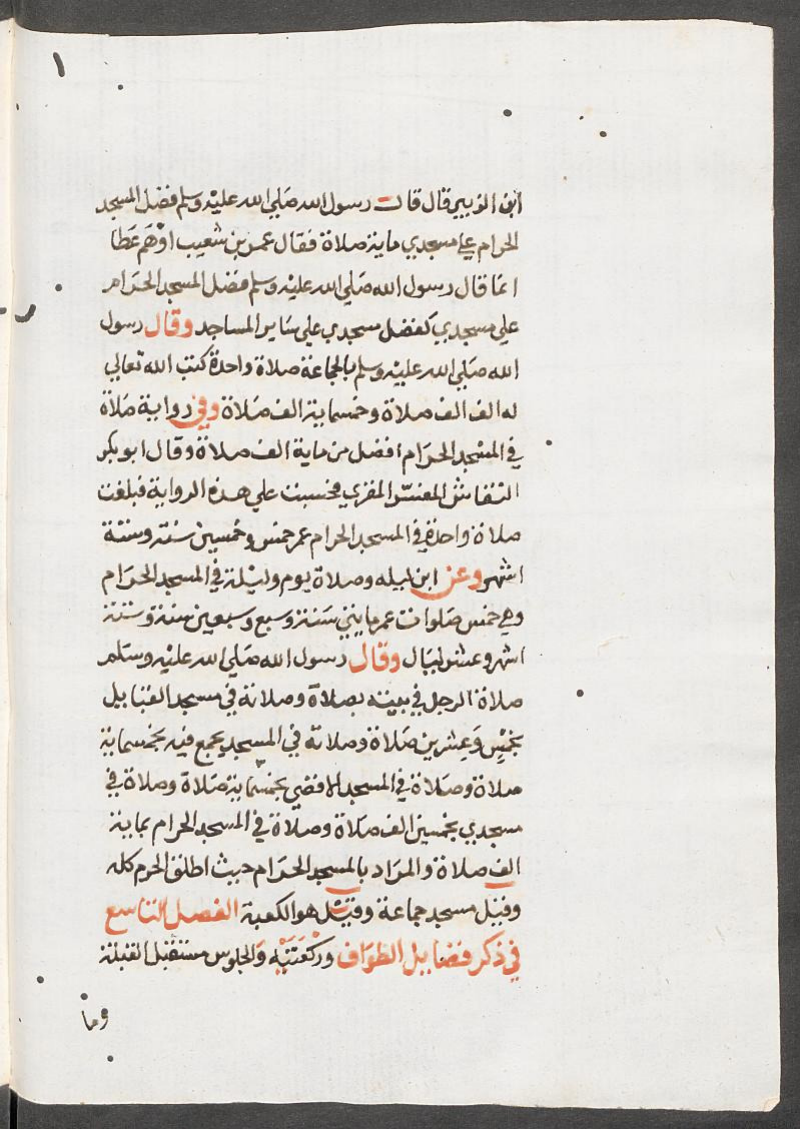 ابن الزبير قال قال رسول الله صلي الله عليه وسلم فضل المسجد
الحرام علي مسجدي ماية صلاة فقال عمرو بن شعيب اوهم عطا
انما قال رسول الله صلي الله عليه وسلم فضل المسجد الحرام
علي مسجدي كفضل مسجدي علي ساير المساجد وقال رسول
الله صلي الله عليه وسلم بالجماعة صلاة واحدة كتب الله تعالي
له الف الف صلاة وخمسماية الف صلاة وفي رواية صلاة
في المسجد الحرام افضل من ماية الف صلاة وقال ابو بكر
النقاش المفسر المقري فحسبت علي هذه الرواية فبلغت
صلاة واحدة في المسجد الحرام عمر خمس وخمسين سنة وستة
اشهر وعن ابن ليله وصلاة يوم وليلة في المسجد الحرام
وهي خمس صلوات عمر مايتي سنة وسبع وسبعين سنة وستة
اشهر وعشر ليال وقال رسول الله صلي الله عليه وسلم
صلاة الرجل في بيته بصلاة وصلاته في مسجد القبايل
بخمس وعشرين صلاة وصلاته في المسجد يجمع فيه بخمسماية
صلاة وصلاة في المسجد الاقصي بخمسماية صلاة وصلاة في
مسجدي بخمسين الف صلاة وصلاة في المسجد الحرام بماية
الف صلاة والمراد بالمسجد الحرام حيث اطلق الحرم كله
وقيل مسجد جماعة وقيل هو الكعبة الفصل التاسع
في ذكر فضايل الطواف وركعتيه والجلوس مستقبل القبلة
وما